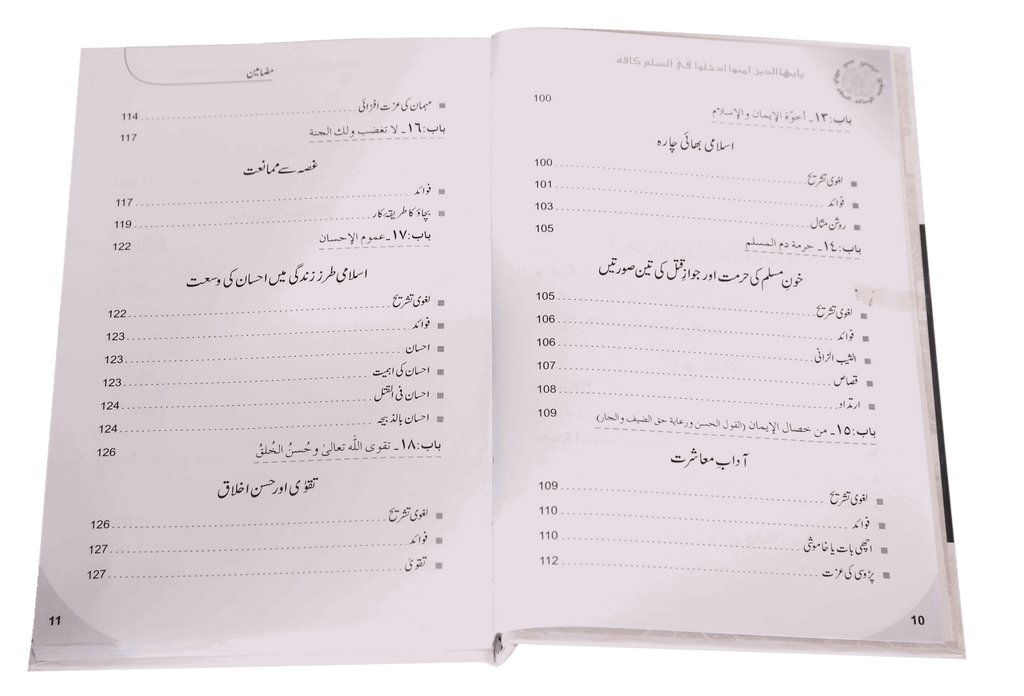 يايها الذين امنوا ادخلوا في السلم كافة
باب:١٣۔ أخوّة الإيمان والإسلام 100
اسلامی بھائی چارہ
لغوی تشریح 100
فوائد 101
روشن مثال 103
باب:١٤۔ حرمة دم المسلم 105
خونِ مسلم کی حرمت اور جوازِ قتل کی تین صورتیں
لغوی تشریح 105
فوائد 106
الثیب الزانی 106
قصاص 107
ارتداد 108
باب:١٥۔ من خصال الإيمان (القول الحسن ورعاية حق الضيف والجار) 109
آدابِ معاشرت
لغوی تشریح 109
فوائد 110
اچھی بات یا خاموشی 110
پڑوسی کی عزت 112
10
مضامین
مہمان کی عزت افزائی 114
باب:١٦۔ لا تغضب ولك الجنة 117
غصہ سے ممانعت
فوائد 117
بچاؤ کا طریقۂ کار 119
باب:١٧۔ عموم الإحسان 122
اسلامی طرز زندگی میں احسان کی وسعت
لغوی تشریح 122
فوائد 123
احسان 123
احسان کی اہمیت 123
احسان فی القتل 124
احسان بالذبیحہ 124
باب:١٨۔ تقوى اللّٰه تعالىٰ و حُسنُ الخُلقُ 126
تقوٰی اور حسن اخلاق
لغوی تشریح 126
فوائد 127
تقویٰ 127
11